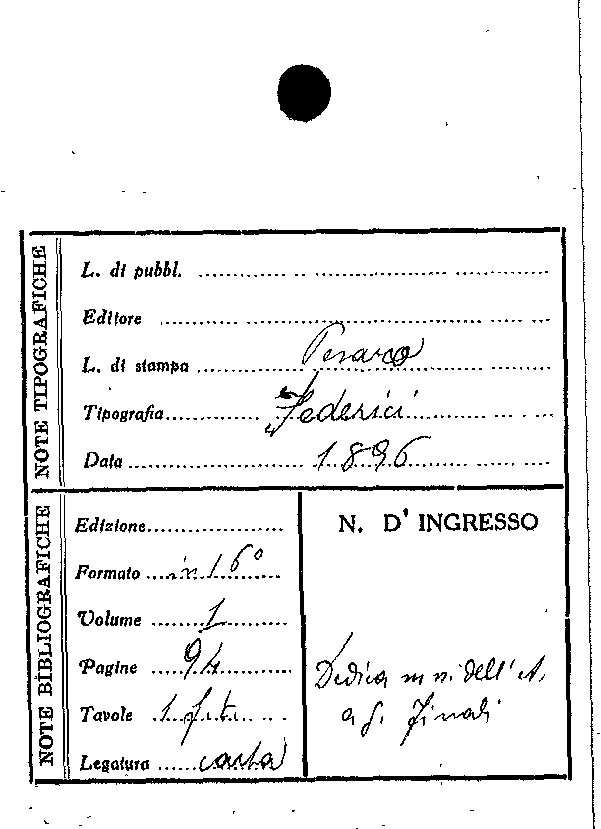 NOTE TIPOGRAFICHE
L. di pubbl.
Editore
L. di stampa Pesaro
Tipografia Federici
Data 1896
NOTE BIBLIOGRAFICHE
Edizione
Formato in 16°
Volume 1
Pagine 94
Tavole 1
Legatura carta
N. D' INGRESSO
Dedica m n. dell' A.
a G. Finali